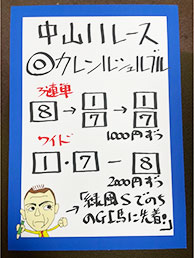 中山11レース
◎カレンルシェルブル
3連単
8→1 7→1 7
1000円ずつ
ワイド
1・7-8
2000円ずつ
→「緑風Sで
のGI馬に先着!」